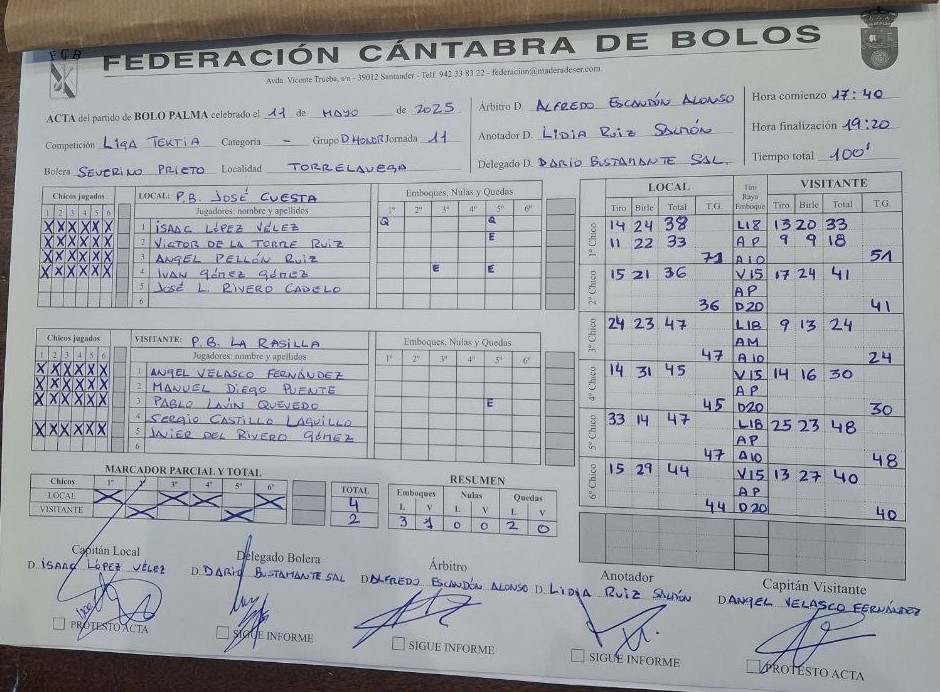 F C B
FEDERACIÓN CÁNTABRA DE BOLOS
Avda. Vicente Trueba, s/n - 39012 Santander - Telf. 942 33 83 22 - federacion@maderadeser.com
ACTA del partido de BOLO PALMA celebrado el 11 de MAYO de 2025
Competición LIGA TERTIA Categoria - Grupo D HONOR Jornada 11
Bolera SEVERINO PRIETO Localidad TORRELAVEGA
Árbitro D. ALFREDO ESCANDÓN ALONSO
Anotador D. LIDIA RUIZ SALMÓN
Delegado D. DARIO BUSTAMANTE SAL.
Hora comienzo 17:40
Hora finalización 19:20
Tiempo total 100'
Chicos jugados
1 2 3 4 5 6
X X X X X X
X X X X X X
X X X X X X
X X X X X X
LOCAL: P.B. JOSÉ CUESTA
Jugadores: nombre y apellidos
1 ISAAC LÓPEZ VÉLEZ
2 VICTOR DE LA TORRE RUIZ
3 ANGEL PELLÓN RUIZ
4 IVAN GÓMEZ GÓMEZ
5 JOSÉ L. RIVERO CADELO
6
Emboques, Nulas y Quedas
1º 2º 3º 4º 5º 6º
Q Q
E
E E
Chicos jugados
1 2 3 4 5 6
X X X X X X
X X X X X X
X X X X X X
X X X X X X
VISITANTE: P.B. LA RASILLA
Jugadores: nombre y apellidos
1 ANGEL VELASCO FERNÁNDEZ
2 MANUEL DIEGO PUENTE
3 PABLO LAVIN QUEVEDO
4 SERGIO CASTILLO LAGUILLO
5 JAVIER DEL RIVERO GÓMEZ
6
Emboques, Nulas y Quedas
1º 2º 3º 4º 5º 6º
E
LOCAL Tiro Raya Emboque VISITANTE
Tiro Birle Total T.G. Tiro Birle Total T.G.
1º Chico
14 24 38 L18 13 20 33
11 22 33 AP 9 9 18
71 A10 51
2º Chico
15 21 36 V15 17 24 41
AP
36 D20 41
3º Chico
24 23 47 L18 9 13 24
AM
47 A10 24
4º Chico
14 31 45 V15 14 16 30
AP
45 D20 30
5º Chico
33 14 47 L18 25 23 48
AP
47 A10 48
6º Chico
15 29 44 V15 13 27 40
AP
44 D20 40
MARCADOR PARCIAL Y TOTAL
Chicos 1º 2º 3º 4º 5º 6º TOTAL
LOCAL X X X X 4
VISITANTE X X 2
RESUMEN
Emboques Nulas Quedas
L V L V L V
3 1 0 0 2 0
Capitán Local
D. ISAAC LÓPEZ VÉLEZ
PROTESTO ACTA
Delegado Bolera
D. DARIO BUSTAMANTE SAL
SIGUE INFORME
Árbitro
D. ALFREDO ESCANDÓN ALONSO
SIGUE INFORME
Anotador
D. LIDIA RUIZ SALMÓN
SIGUE INFORME
Capitán Visitante
D. ANGEL VELASCO FERNÁNDEZ
PROTESTO ACTA